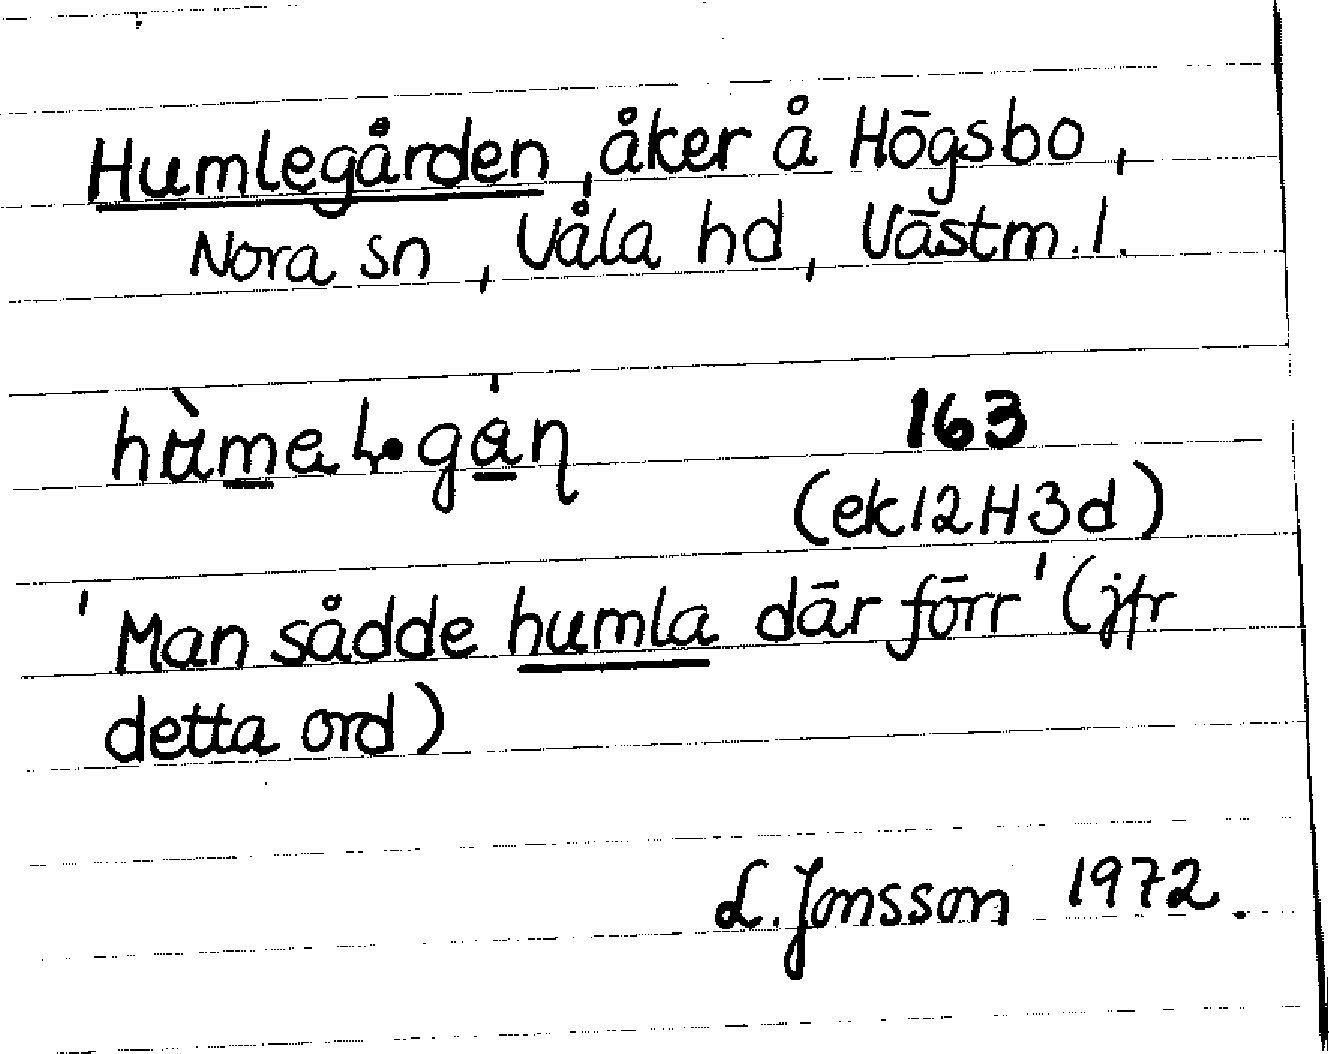 Humlegården, åker å Högsbo,
Nora sn, Våla hd, Västm. l.
163
(ek 12H3d)
'Man sådde humla där förr' (jfr
detta ord)
L. Jonsson 1972.